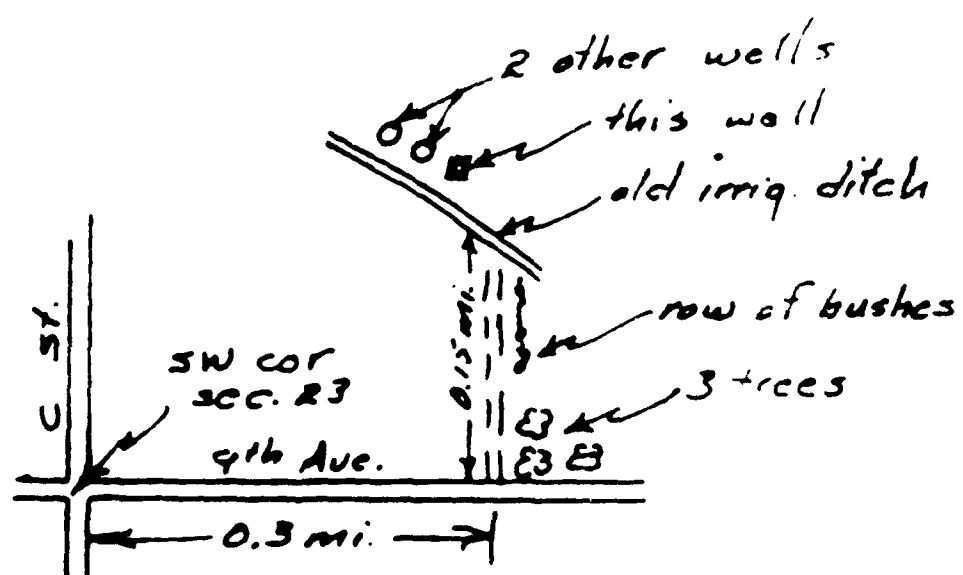 2 other wells
this well
old irrig. ditch
row of bushes
3 trees
0.15 mi.
C St.
SW cor
sec. 23
9th Ave.
0.3 mi.